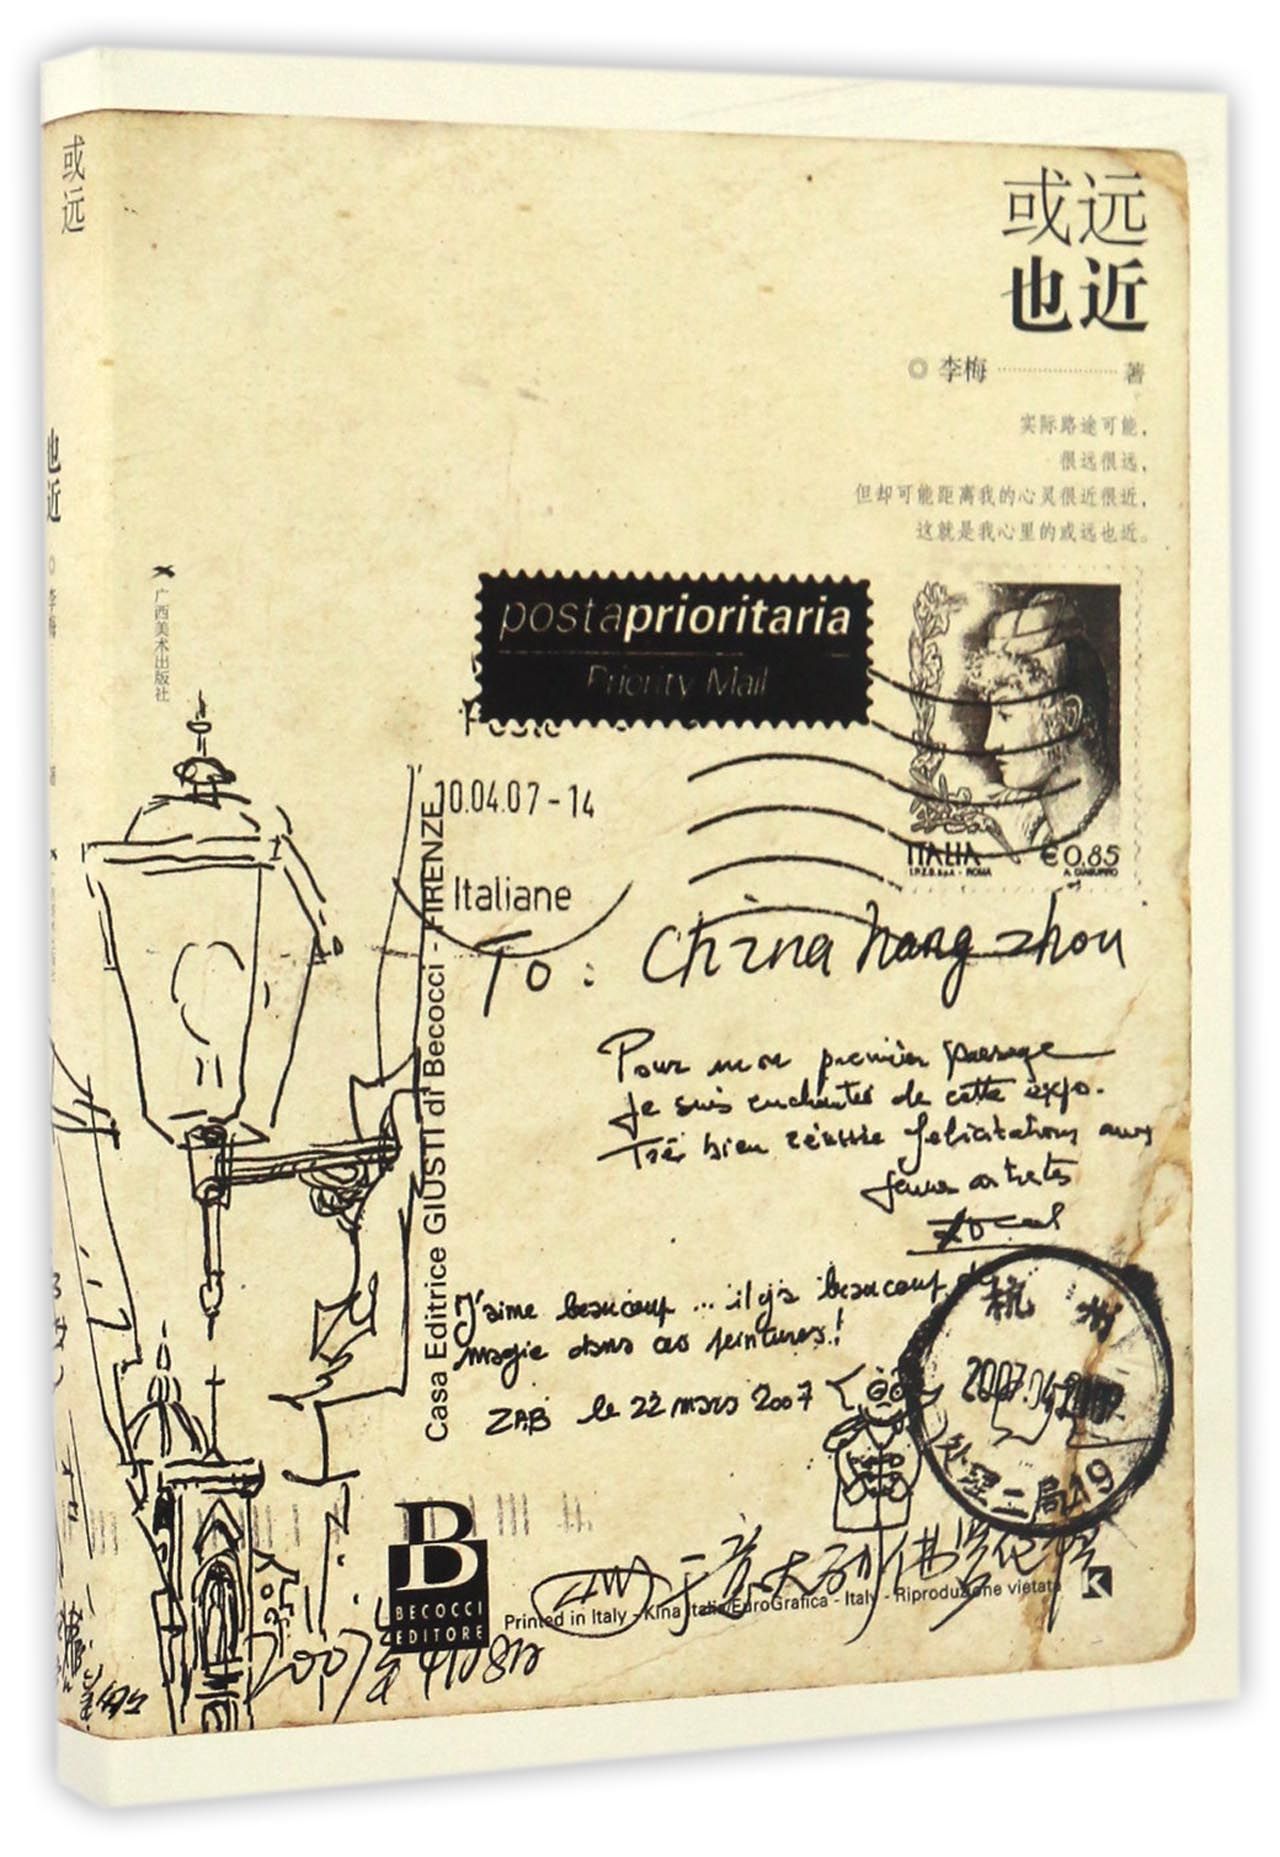 或远
也近
李梅 著
实际路途可能，
很远很远，
但却可能距离我的心灵很近很近，
这就是我心里的或远也近。
或远
也近
李梅
广西美术出版社
postaprioritaria
Priority Mail
Poste
10.04.07-14
Italiane
ITALIA €0,85
I.P.Z.S. S.p.A. - ROMA
To: China hangzhou
Casa Editrice GIUSTI di Becocci - FIRENZE
Pour mon premier passage
je suis enchantée de cette expo.
Très bien réussie félicitations aux
J'aime beaucoup ... il y a beaucoup de
magie dans ces peintures!
ZAB le 22 mars 2007
杭州
2007.04
处理二局
19
B
BECOCCI
EDITORE
于意大利佛罗伦萨
Printed in Italy - Kina Italia/EuroGrafica - Italy - Riproduzione vietata
K
2007年4月8日